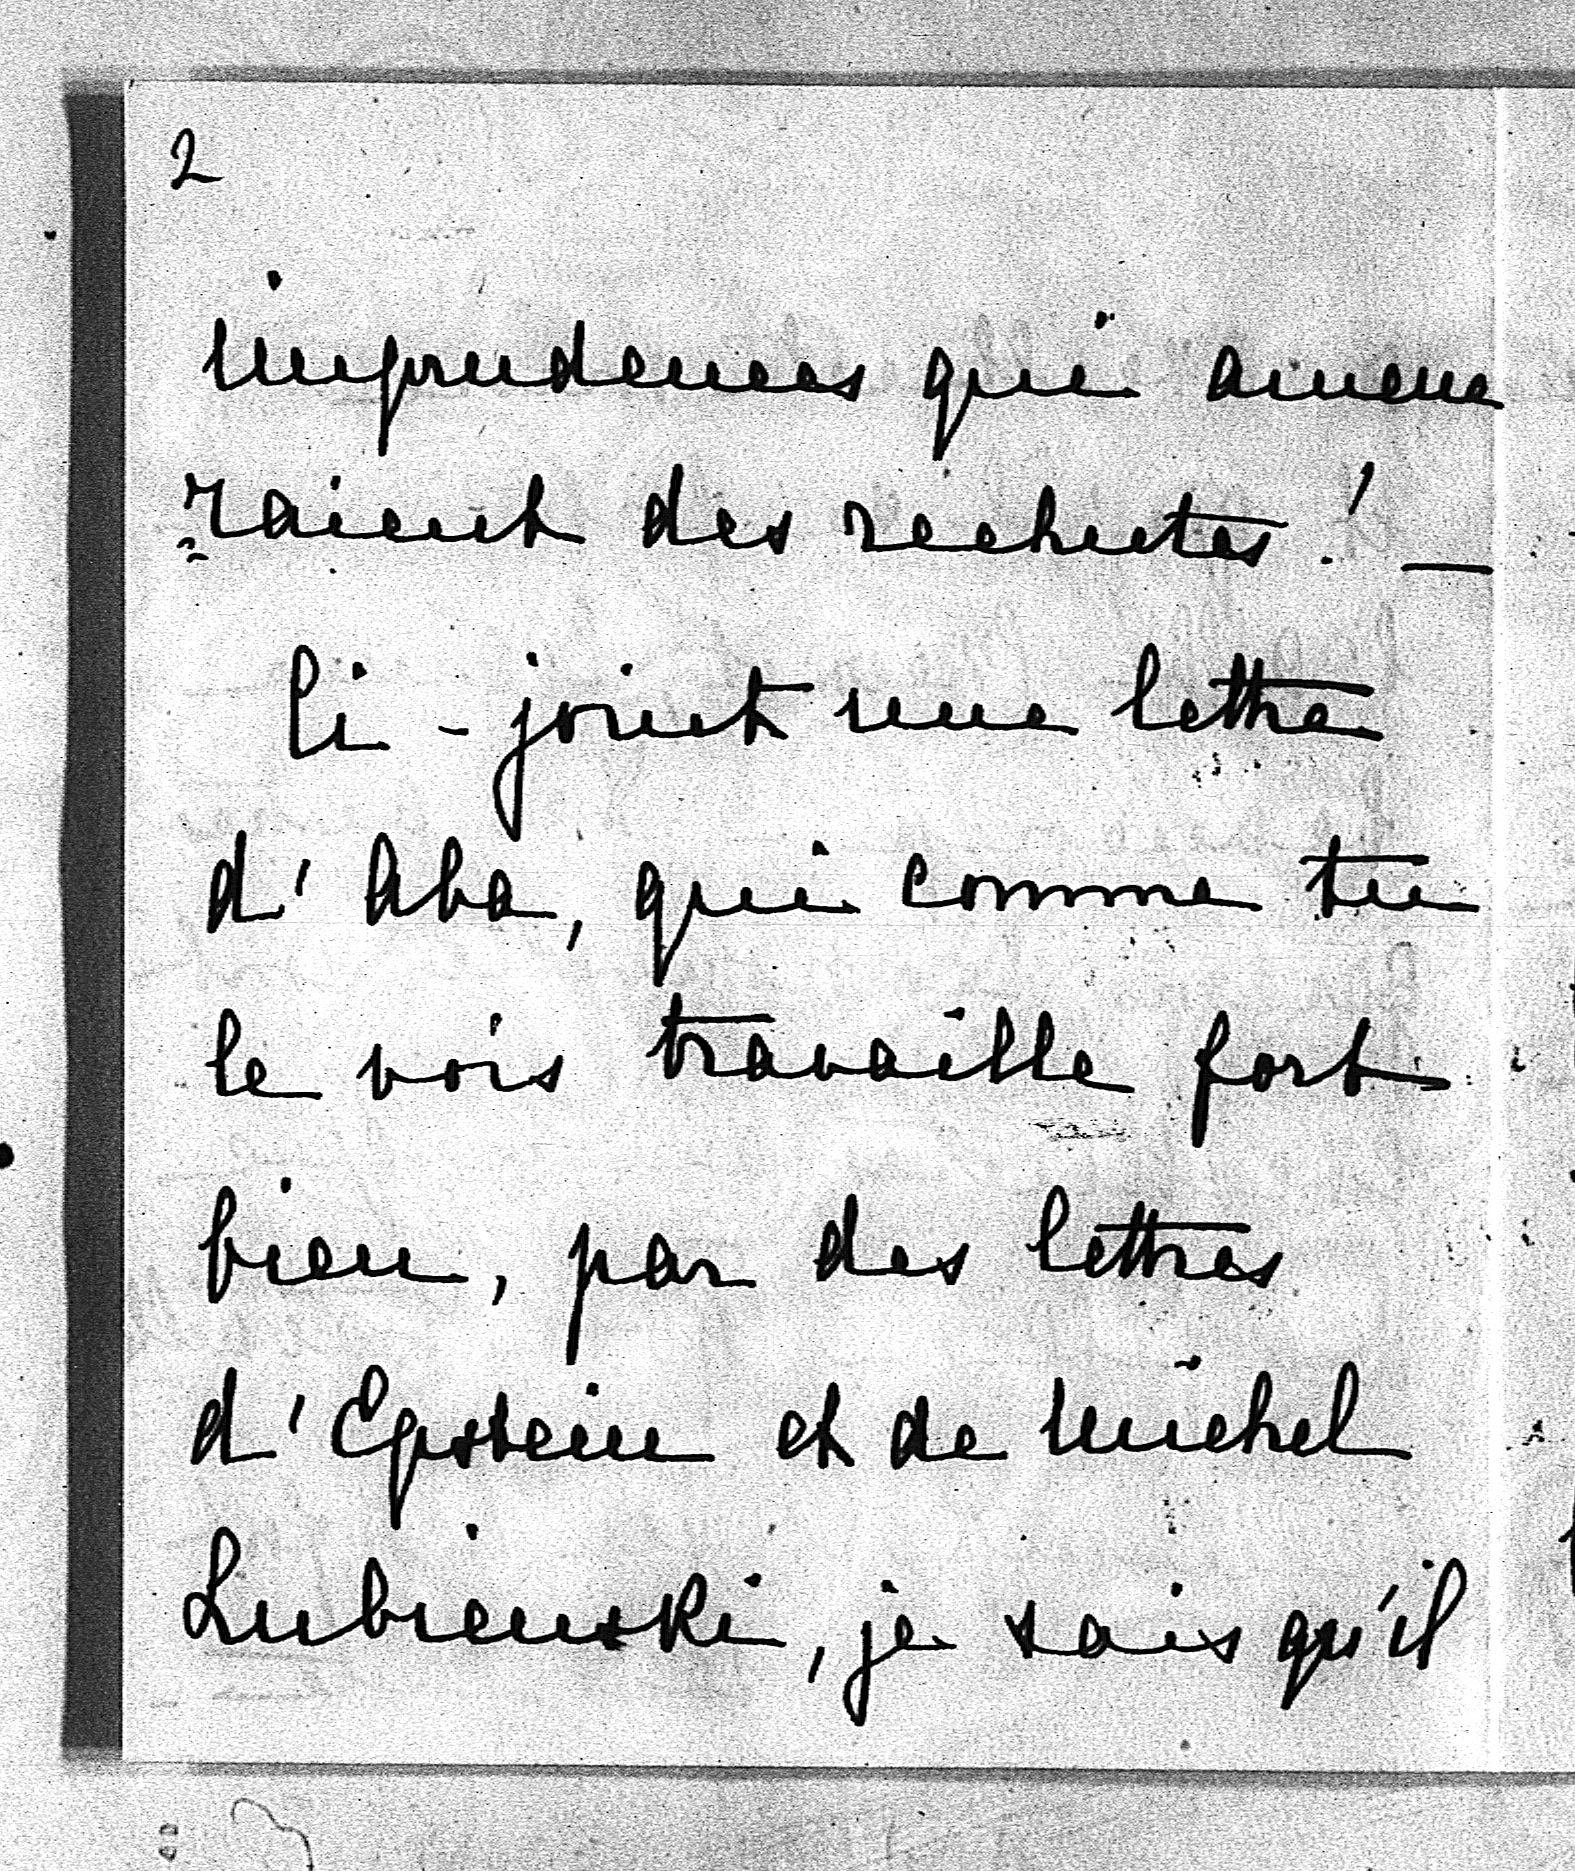 2
imprudences qui amène
=raient des rechutes! —
Ci-joint une lettre
d'Aba, qui comme tu
le vois travaille fort
bien, par des lettres
d'Epstein et de Michel
Lubienski, je sais qu'il